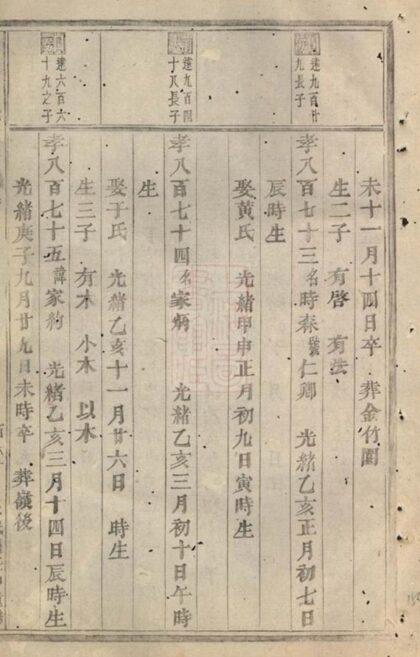 達九百廿
九長子
達九百四
十八長子
達六百六
十九之子
未十一月十四日卒 葬金竹園
生二子 有啓 有法
孝八百七十三名時春號仁卿 光緒乙亥正月初七日
辰時生
娶黃氏 光緒甲申正月初九日寅時生
孝八百七十四名家炳 光緒乙亥三月初十日午時
生
娶于氏 光緒乙亥十一月廿六日 時生
生三子 有木 小木 以木
孝八百七十五諱家約 光緒乙亥三月十四日辰時生
光緒庚子九月廿九日未時卒 葬嶺後